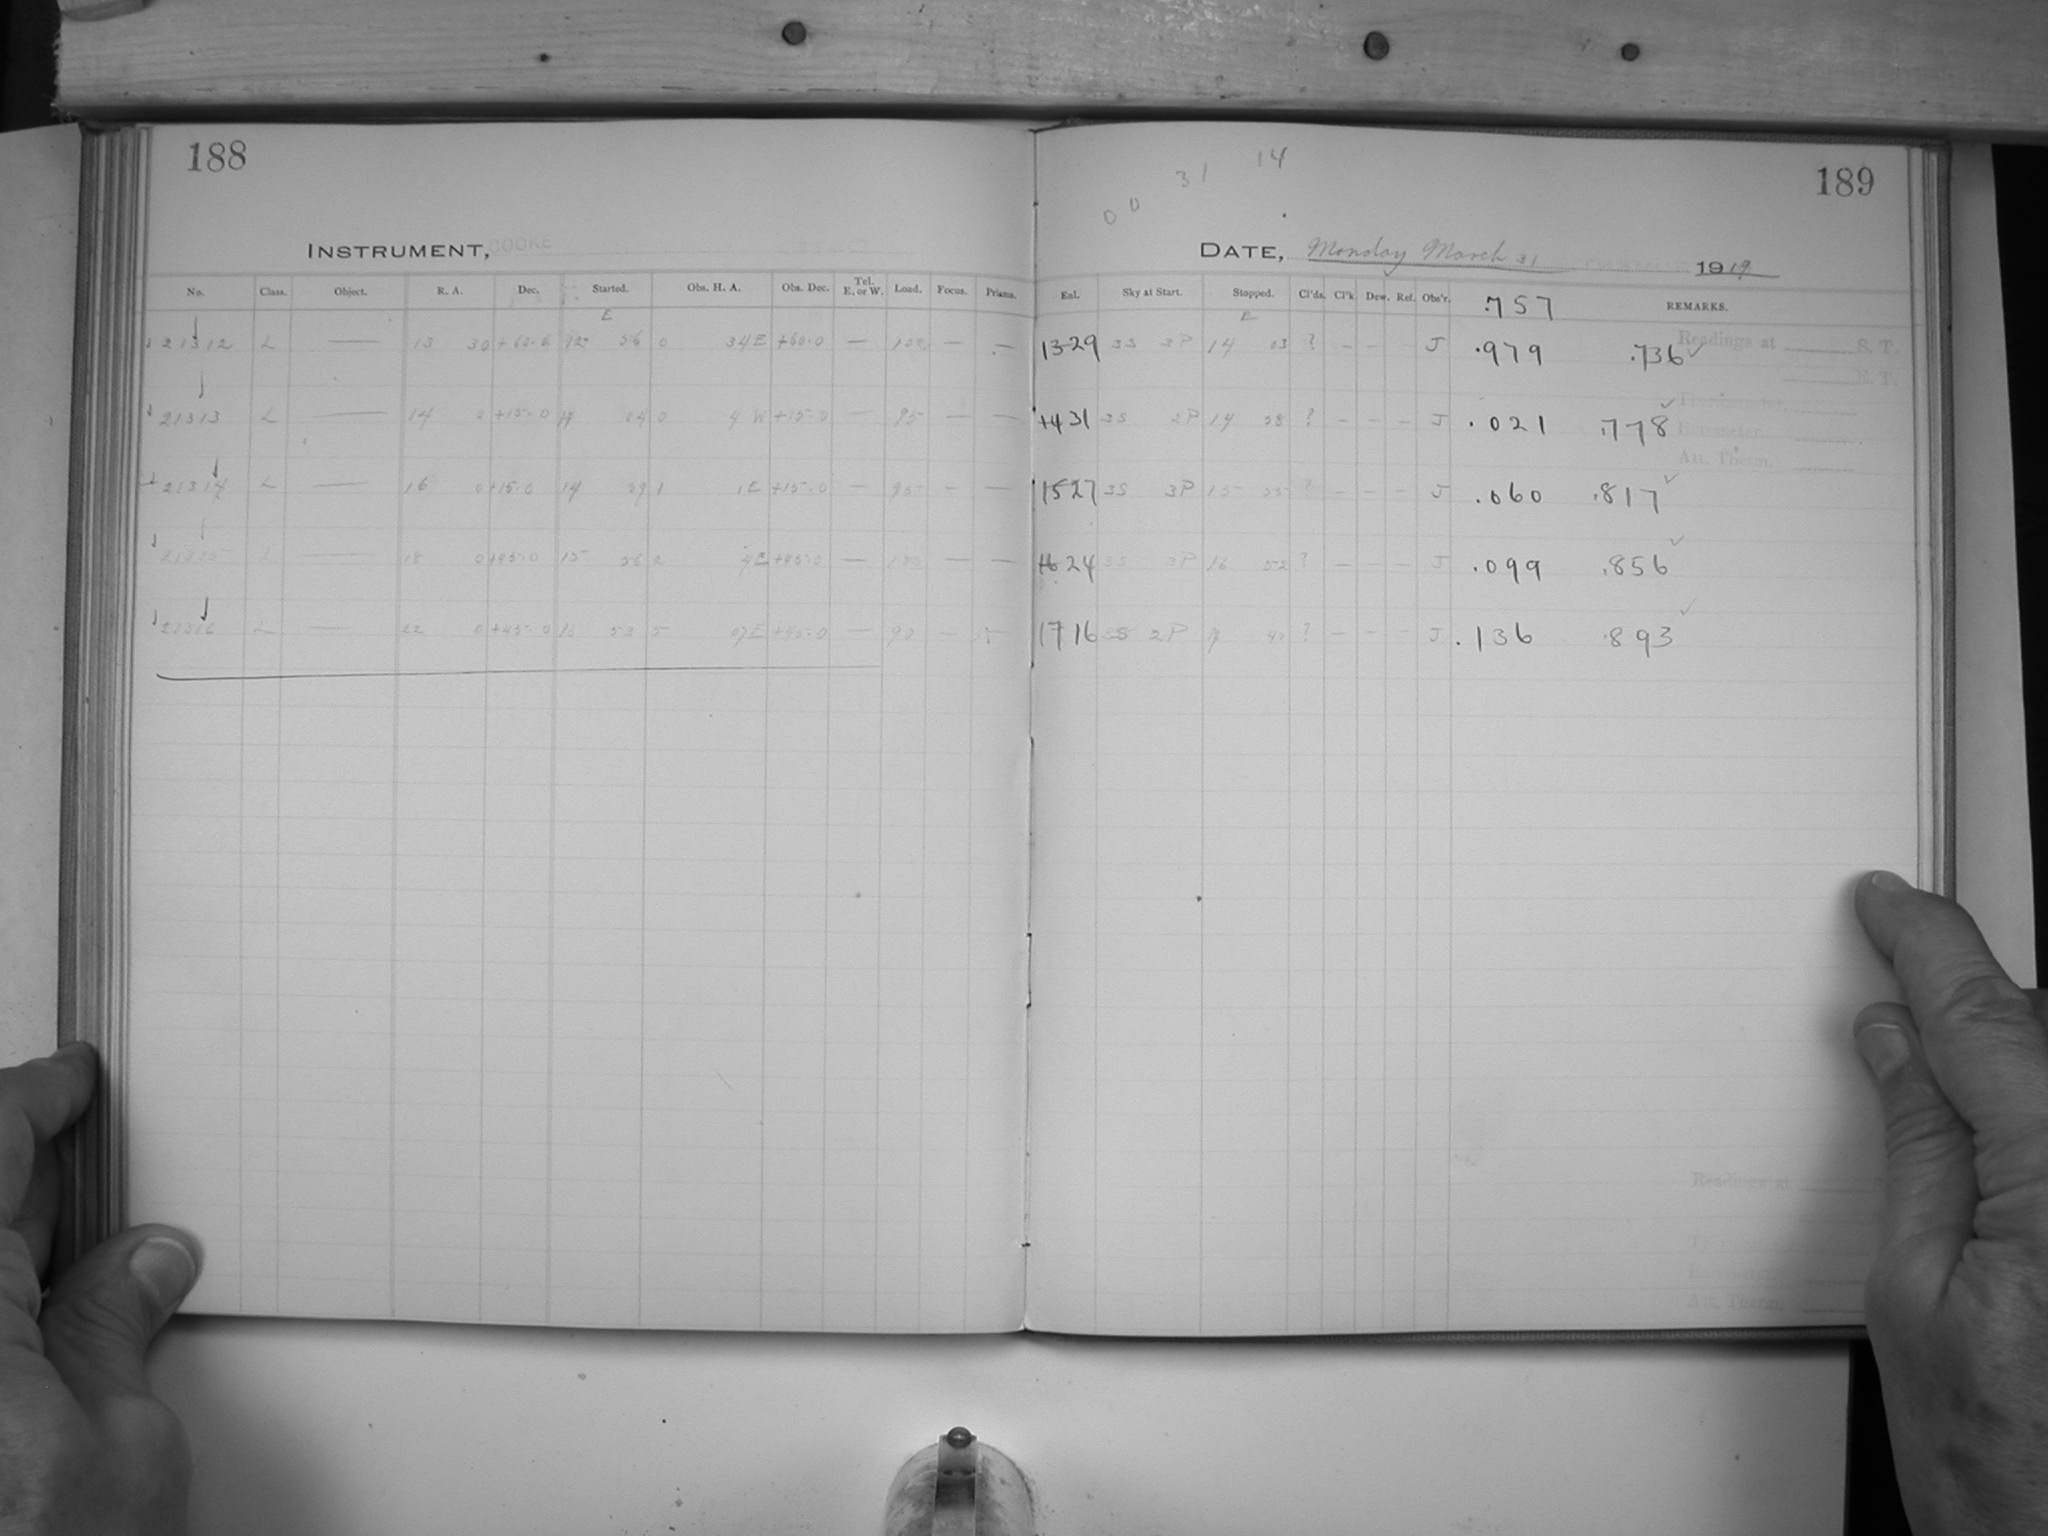 188
INSTRUMENT, COOKE
No. Class. Object. R. A. Dec. Started. Obs. H. A. Obs. Dec. Tel. E. or W. Load. Focus. Prisms.
E
21312 L — 13 30 +60.0 12 56 0 34E +60.0 — 100 — —
21313 L — 14 0 +15.0 14 04 0 4 W +15.0 — 95 — —
21314 L — 16 0 +15.0 14 59 1 1E +15.0 — 95 — —
21315 L — 18 0 +45.0 15 56 2 4E +45.0 — 100 — —
21316 L — 22 0 +45.0 16 53 5 07E +45.0 — 90 —
189
14
31
00
DATE, Monday March 31 1919
Exl. Sky at Start. Stopped. Cl'ds. Cl'k Dew. Ref. Obs'r. .757 REMARKS.
E
1329 3S 3P 14 03 ? — — — J .979 .736 ✓
1431 3S 2P 14 58 ? — — — J .021 .778 ✓
1527 3S 3P 15 55 ? — — — J .060 .817 ✓
1624 3S 3P 16 52 ? — — — J .099 .856 ✓
1716 3S 2P 17 40 ? — — — J .136 .893 ✓
Readings at S. T.
E. T.
Thermometer,
Barometer,
Att. Therm.
Readings at
Att. Therm.